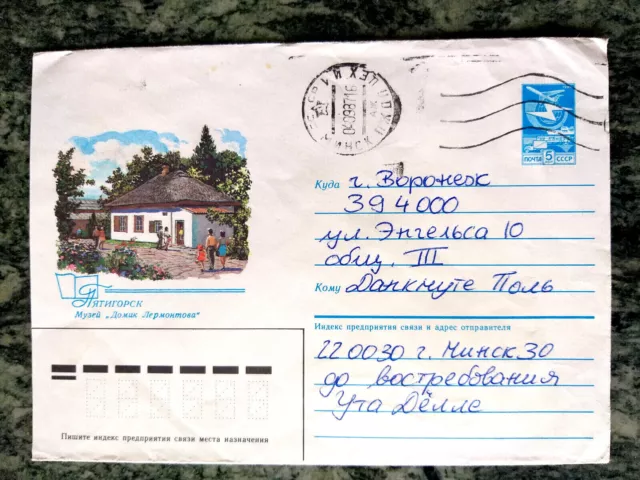 СССР
МИНСК
040987 16
ПОЧТА 5 СССР
Куда г. Воронеж
394000
ул. Энгельса 10
общ. III
Кому Данкнуте Поль
ПЯТИГОРСК
Музей „Домик Лермонтова“
Индекс предприятия связи и адрес отправителя
220030 г. Минск 30
до востребования
Ута Дёлле
Пишите индекс предприятия связи места назначения